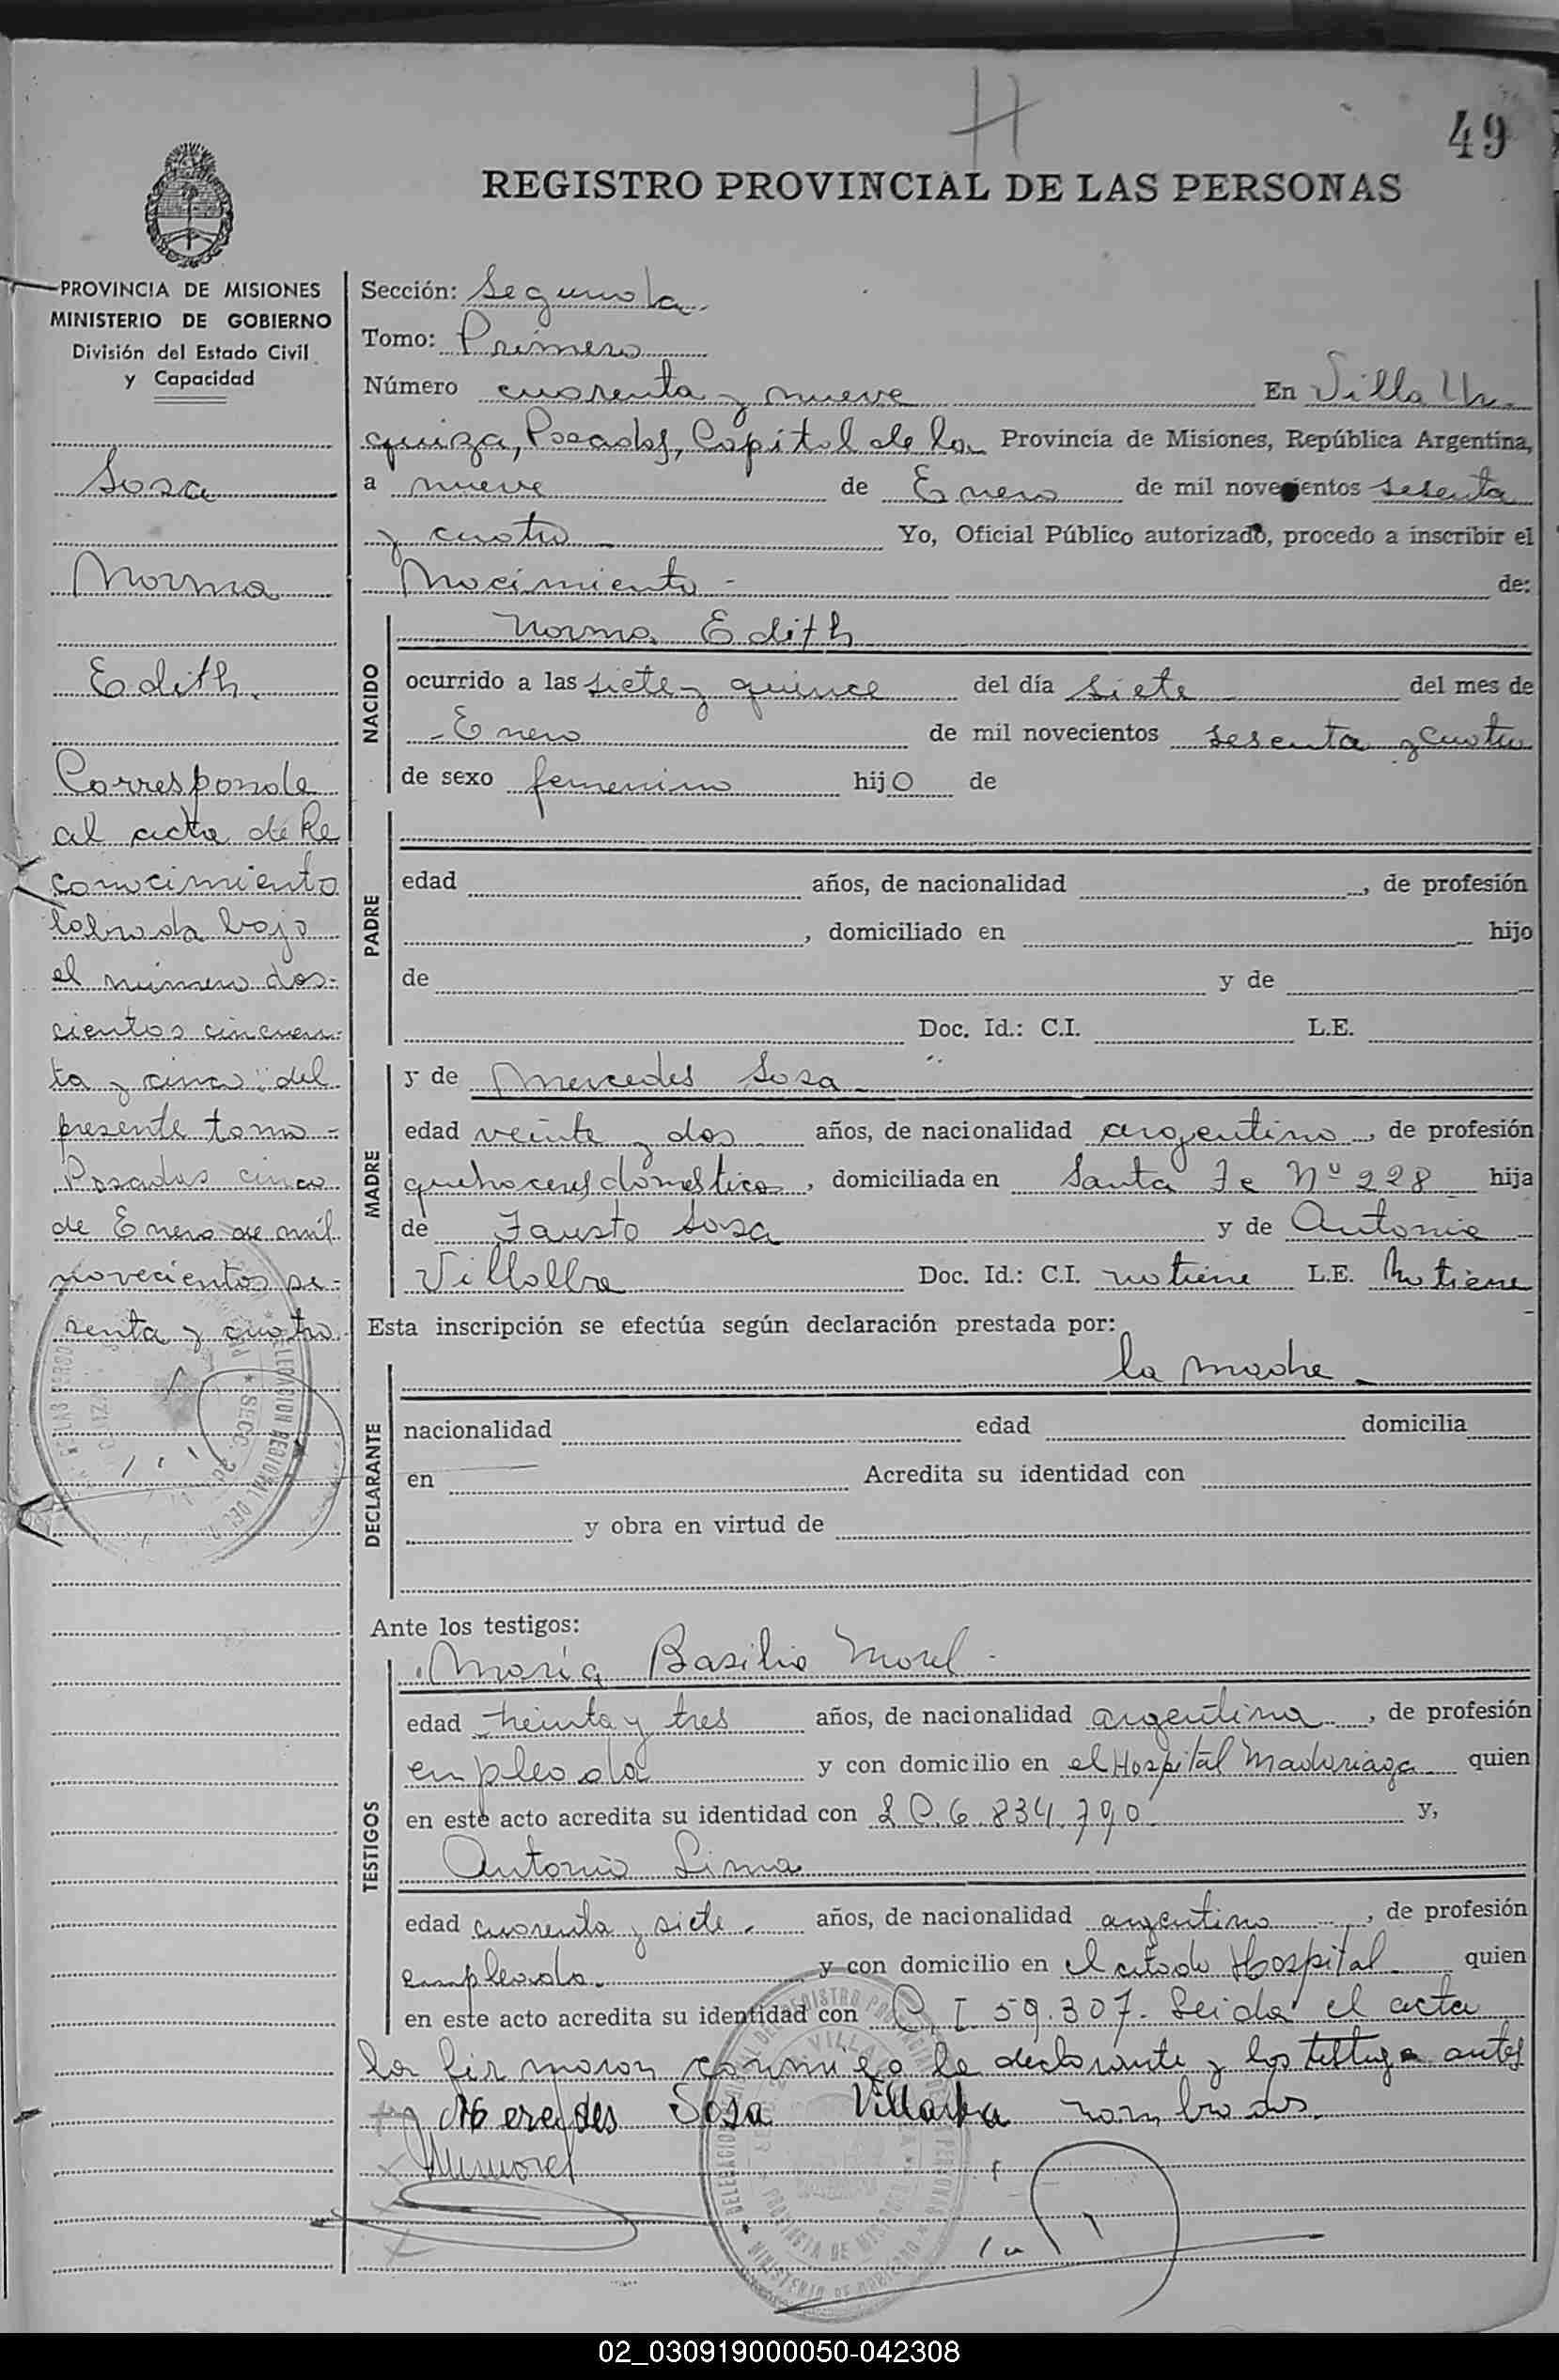 49
REGISTRO PROVINCIAL DE LAS PERSONAS
PROVINCIA DE MISIONES
MINISTERIO DE GOBIERNO
División del Estado Civil
y Capacidad
Sosa
Norma
Edith.
Corresponde
al acta de Re
conocimiento
labrada bajo
el número dos-
cientos cincuen-
ta y cinco del
presente tomo-
Posadas cinco
de Enero de mil
novecientos se-
senta y cuatro.
Sección: Segunda
Tomo: Primero
Número cuarenta y nueve En Villa Ur-
quiza, Posadas, Capital de la Provincia de Misiones, República Argentina,
a nueve de Enero de mil novecientos sesenta
y cuatro Yo, Oficial Público autorizado, procedo a inscribir el
Nacimiento - de:
NACIDO
Norma Edith
ocurrido a las siete y quince del día siete del mes de
Enero de mil novecientos sesenta y cuatro
de sexo femenino hija de
PADRE
edad años, de nacionalidad , de profesión
, domiciliado en hijo
de y de
Doc. Id.: C.I. L.E.
MADRE
y de Mercedes Sosa
edad veinte y dos años, de nacionalidad argentina , de profesión
quehaceres domestico , domiciliada en Santa Fe Nº 228 hija
de Fausto Sosa y de Antonia
Villalba Doc. Id.: C.I. no tiene L.E. No tiene
Esta inscripción se efectúa según declaración prestada por:
la madre
DECLARANTE
nacionalidad edad domicilia
en Acredita su identidad con
y obra en virtud de
Ante los testigos:
TESTIGOS
María Basilia Morel
edad treinta y tres años, de nacionalidad argentina , de profesión
empleada y con domicilio en el Hospital Madariaga quien
en este acto acredita su identidad con L C. 6.834.790 y,
Antonio Lima
edad cuarenta y siete años, de nacionalidad argentino , de profesión
empleado. y con domicilio en el citado Hospital quien
en este acto acredita su identidad con C. I 59.307. Leida el acta
la firmaron conmigo la declarante y los testigos antes
Mercedes Sosa Villalba nombrados.
Mmorel
02_030919000050-042308